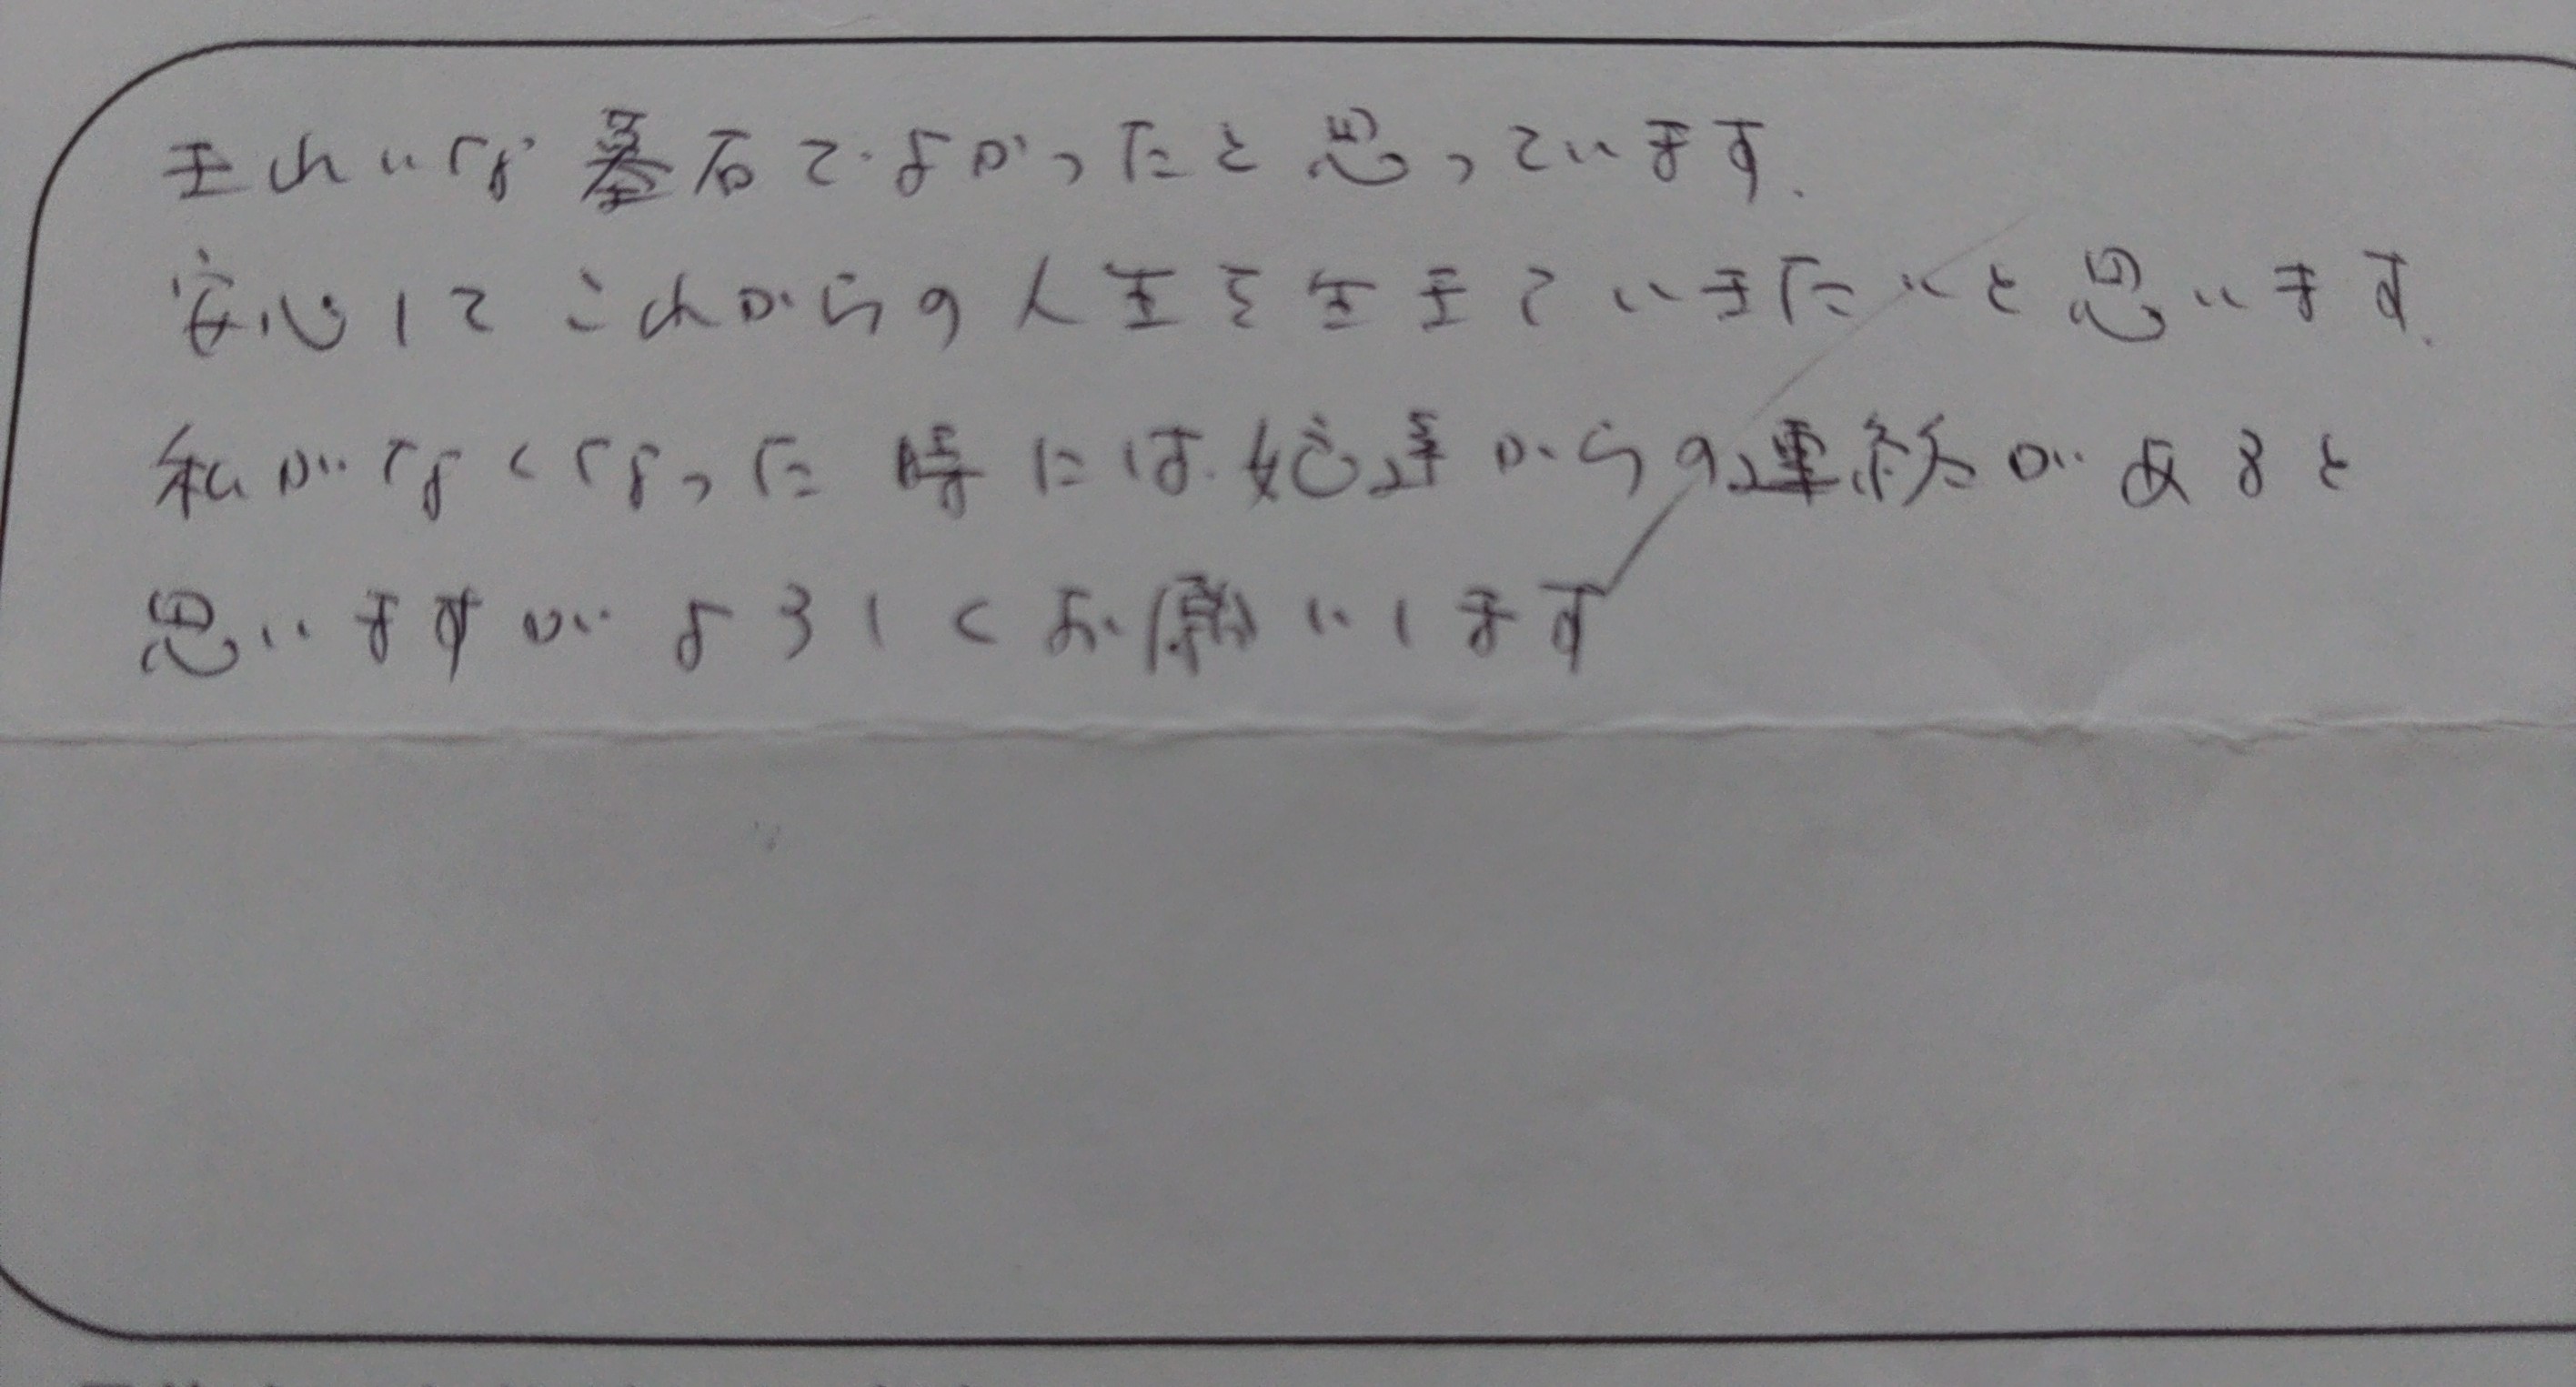 きれいな墓石でよかったと思っています.
安心してこれからの人生を生きていきたいと思います.
私がなくなった時には姪達からの連絡があると
思いますがよろしくお願いします